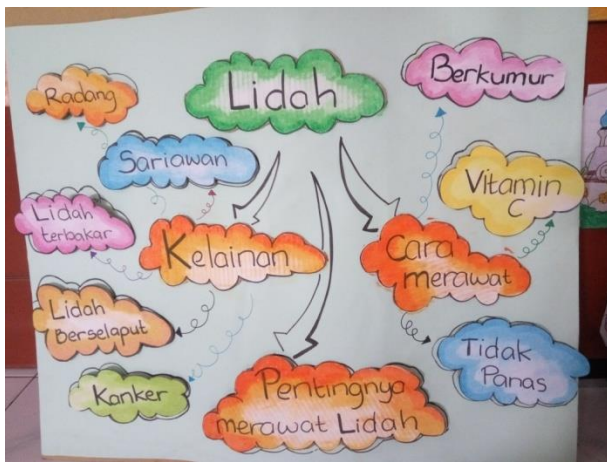 Lidah
Radang
Sariawan
Lidah
terbakar
Kelainan
Lidah
Berselaput
Kanker
Berkumur
Vitamin
C
Cara
merawat
Tidak
Panas
Pentingnya
merawat Lidah